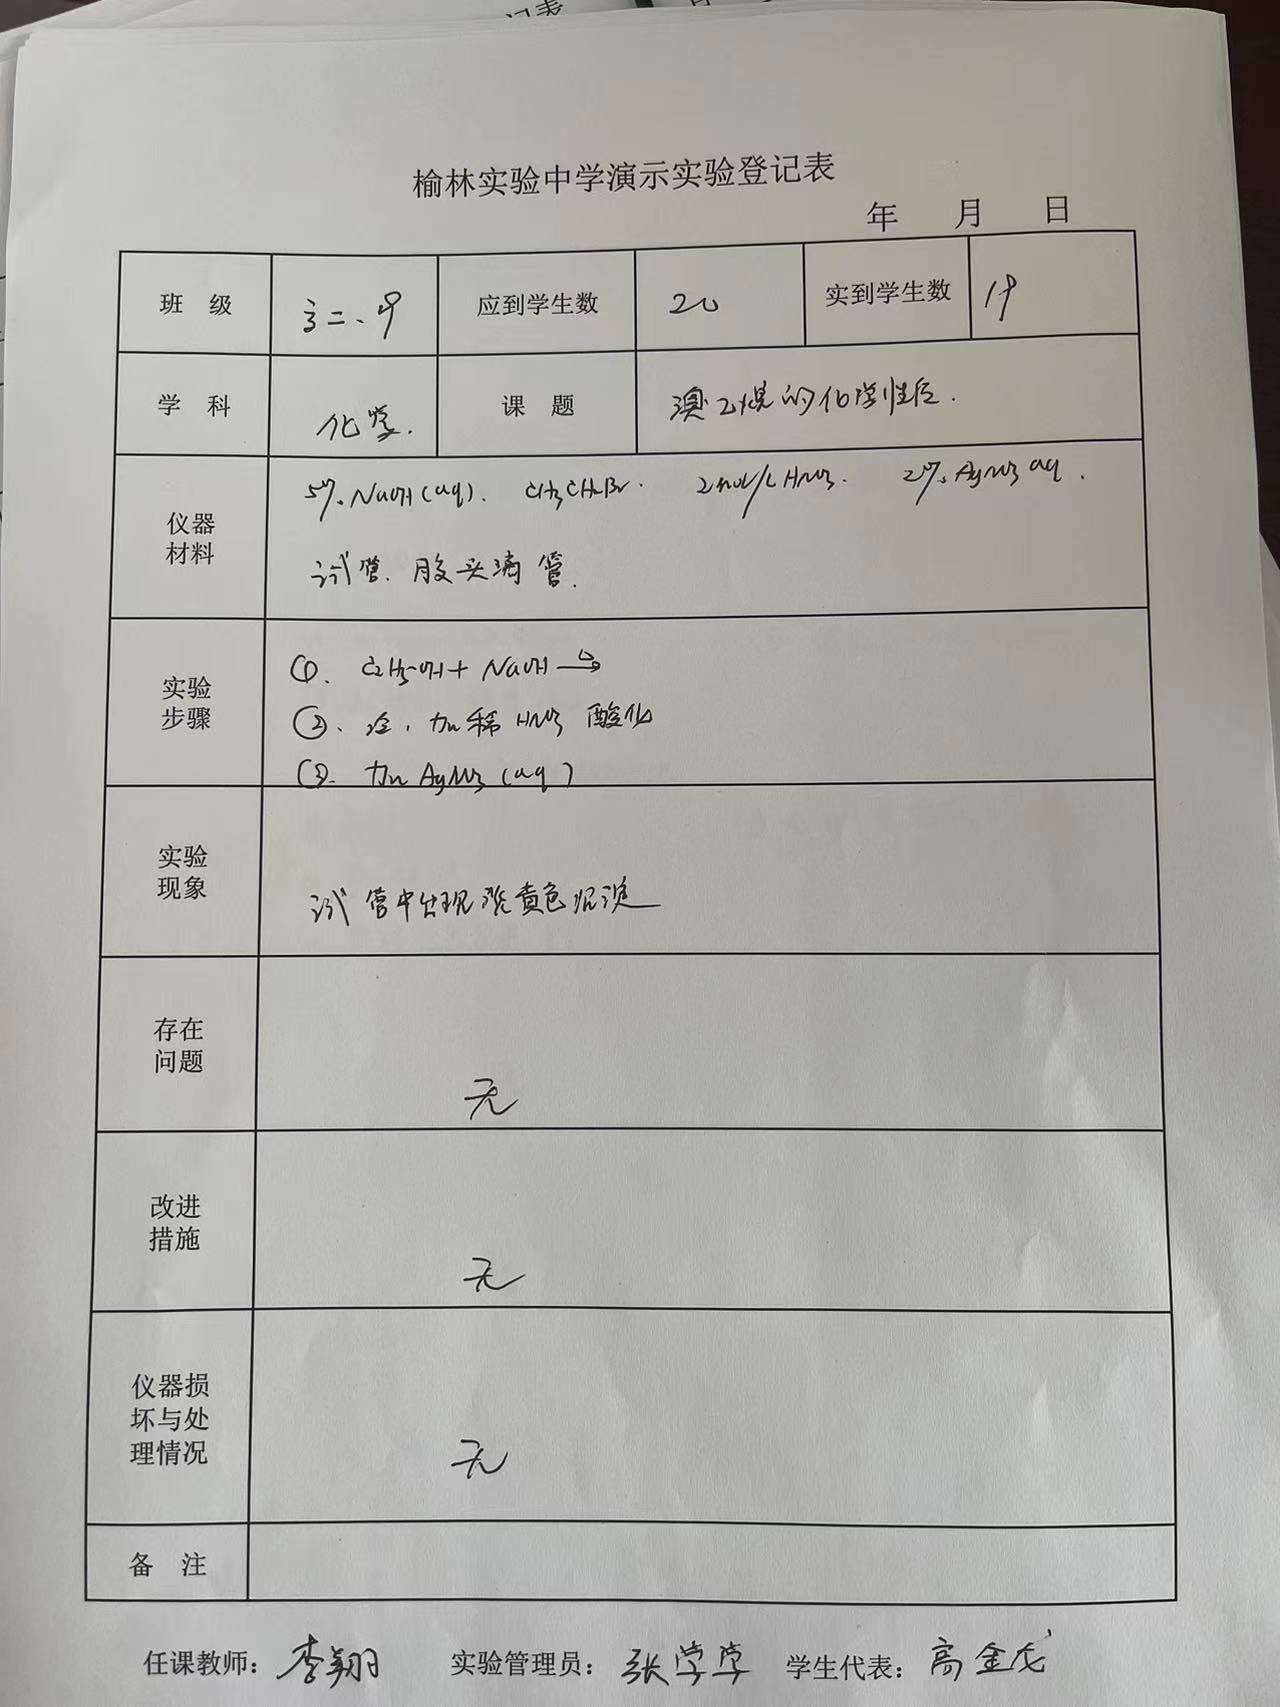 榆林实验中学演示实验登记表
年 月 日
班 级 高二.9 应到学生数 20 实到学生数 19
学 科 化学. 课 题 溴乙烷的化学性质.
仪器材料 5%NaOH(aq). CH3CH2Br. 2mol/L HNO3. 2%AgNO3 aq.
试管. 胶头滴管.
实验步骤 ①. C2H5OH + NaOH →
②. 冷, 加稀HNO3酸化
③. 加AgNO3(aq)
实验现象 试管中出现淡黄色沉淀
存在问题 无
改进措施 无
仪器损坏与处理情况 无
备 注
任课教师: 李翔 实验管理员: 张学学 学生代表: 高金